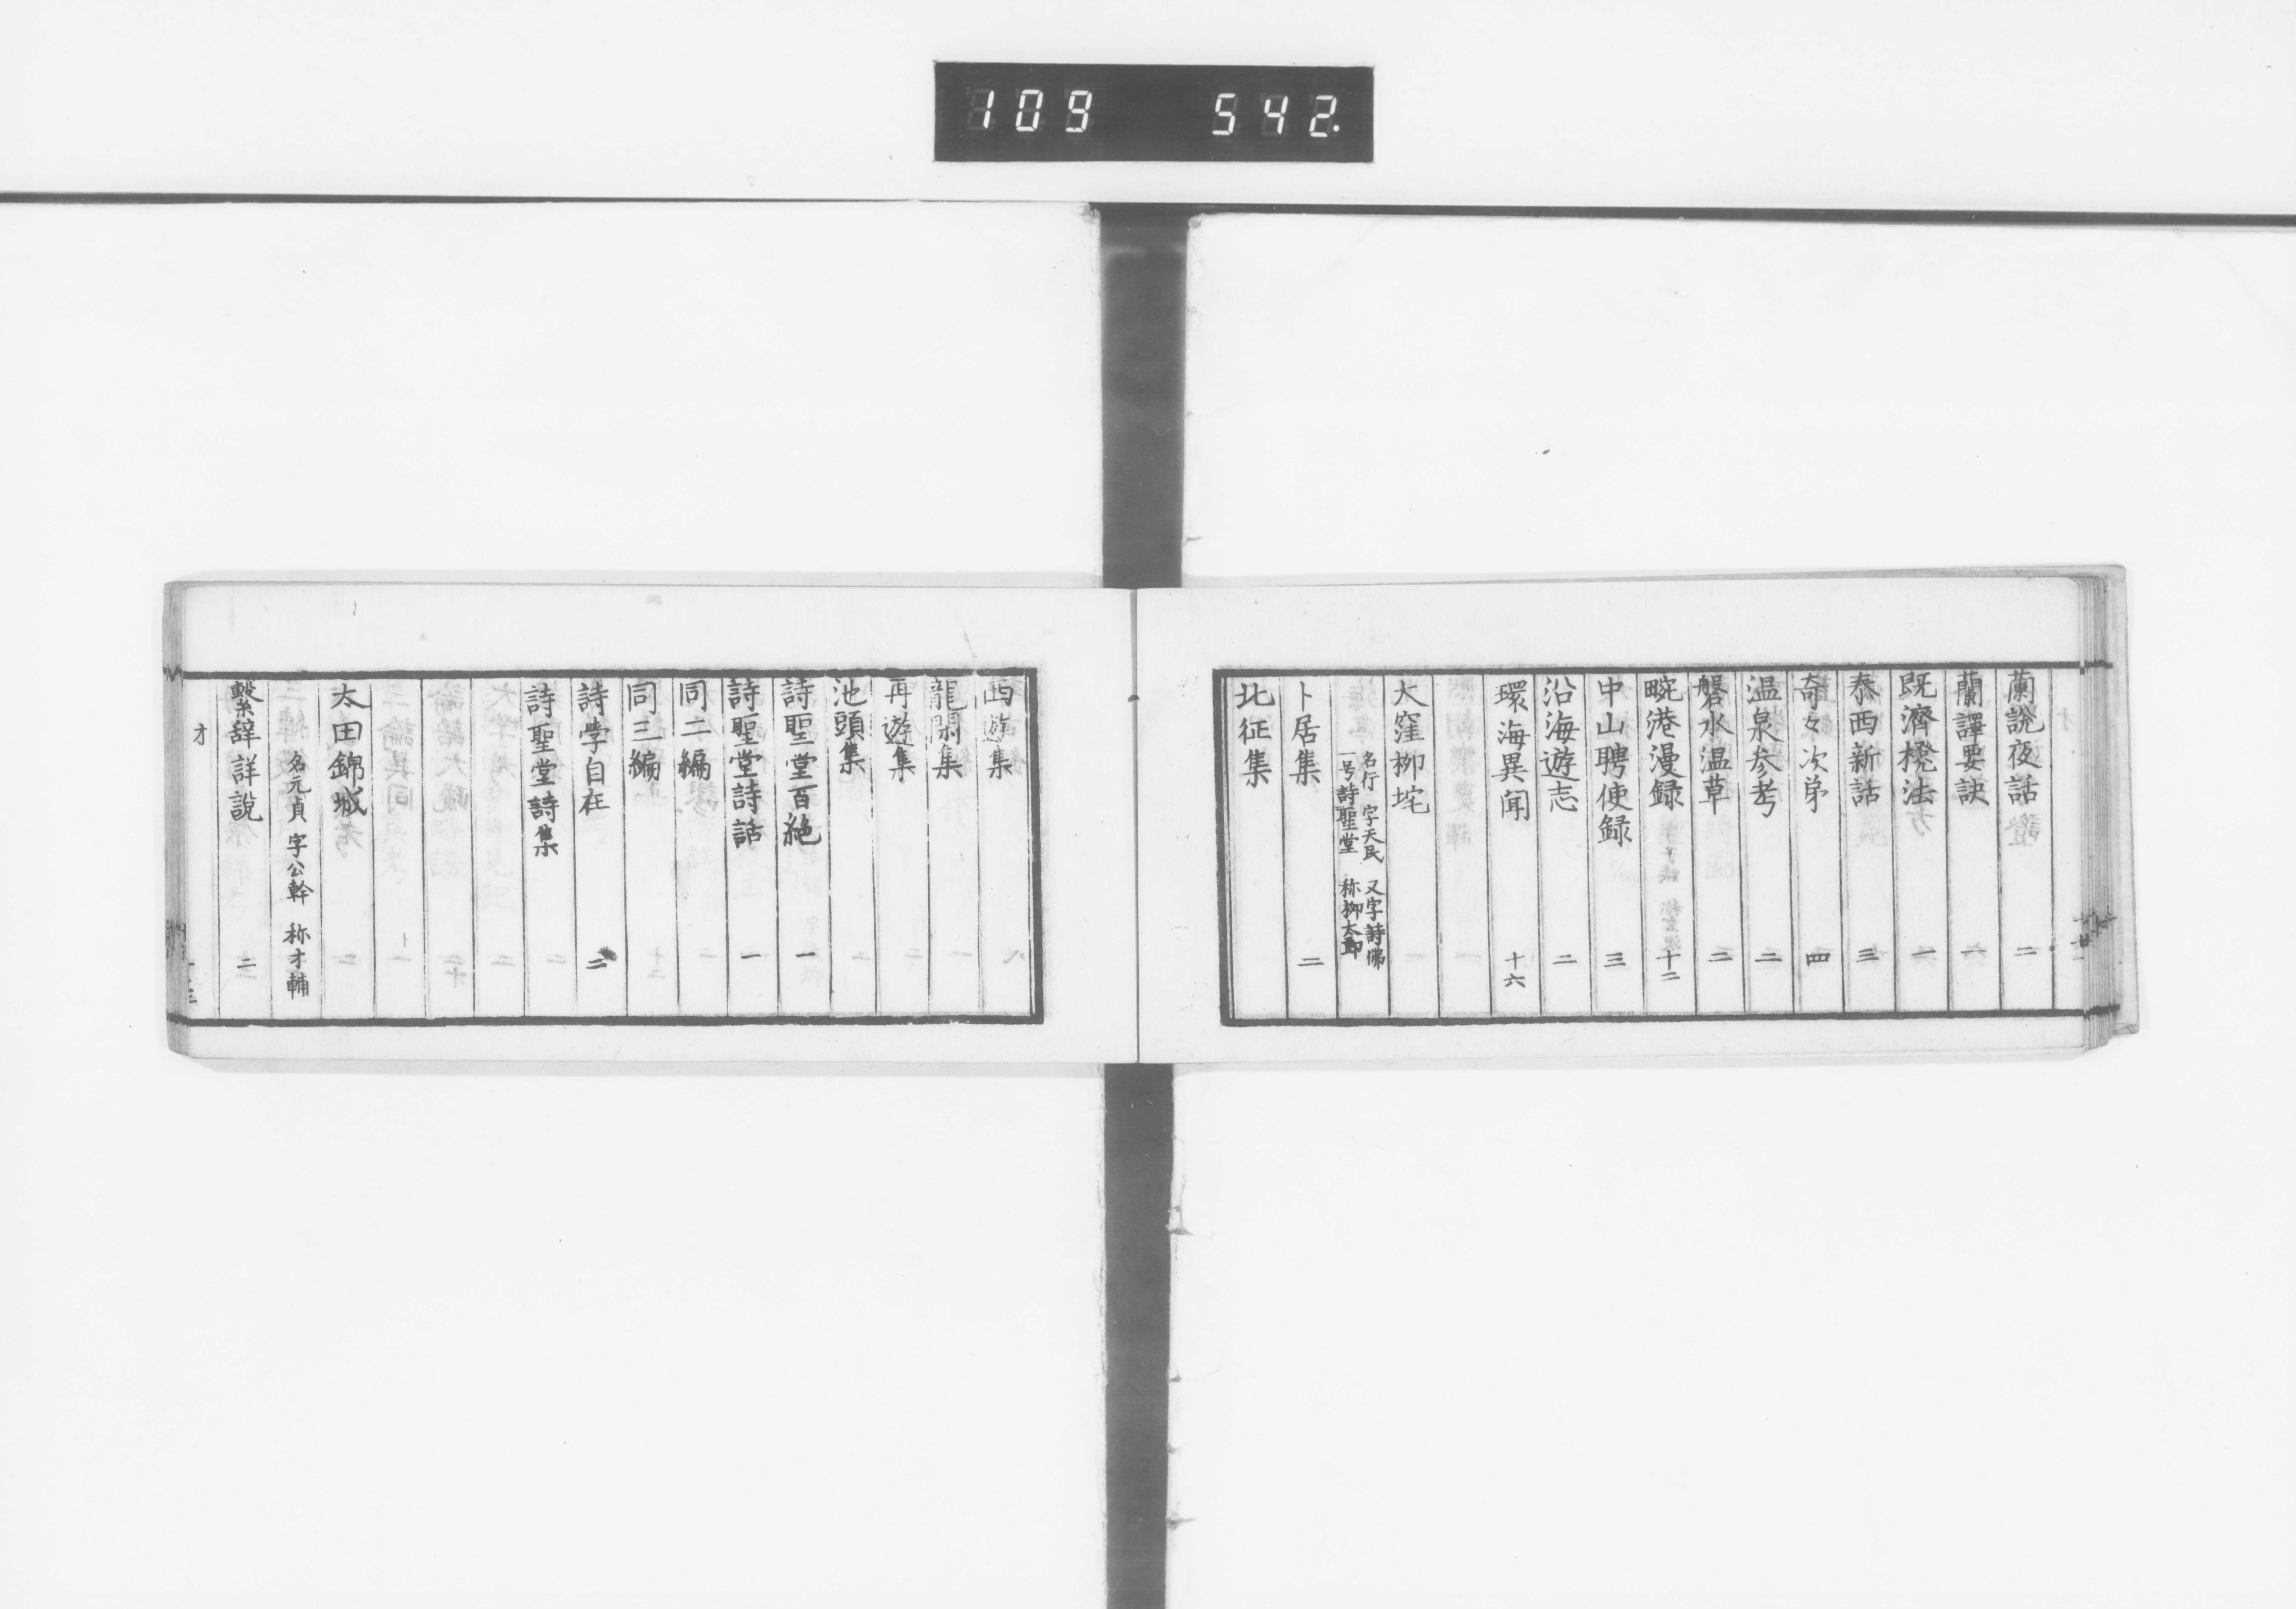 109 542.
蘭說夜話 二
蘭譯要訣 六
既濟櫈法 一
泰西新話 三
奇女次第 四
温泉参考 二
磐水温草 二
畹港漫録 十二
中山聘使録 三
沿海遊志 二
環海異聞 十六
大窪柳垞
名行 字天民 又字詩佛
一号詩聖堂 称柳太郎
卜居集 二
北征集
西遊集
龍閑集
再遊集
池頭集
詩聖堂百絶 一
詩聖堂詩話 一
同二編
同三編
詩学自在 二
詩聖堂詩集
太田錦城
名元貞 字公幹 称才輔
繫辞詳説 二
才